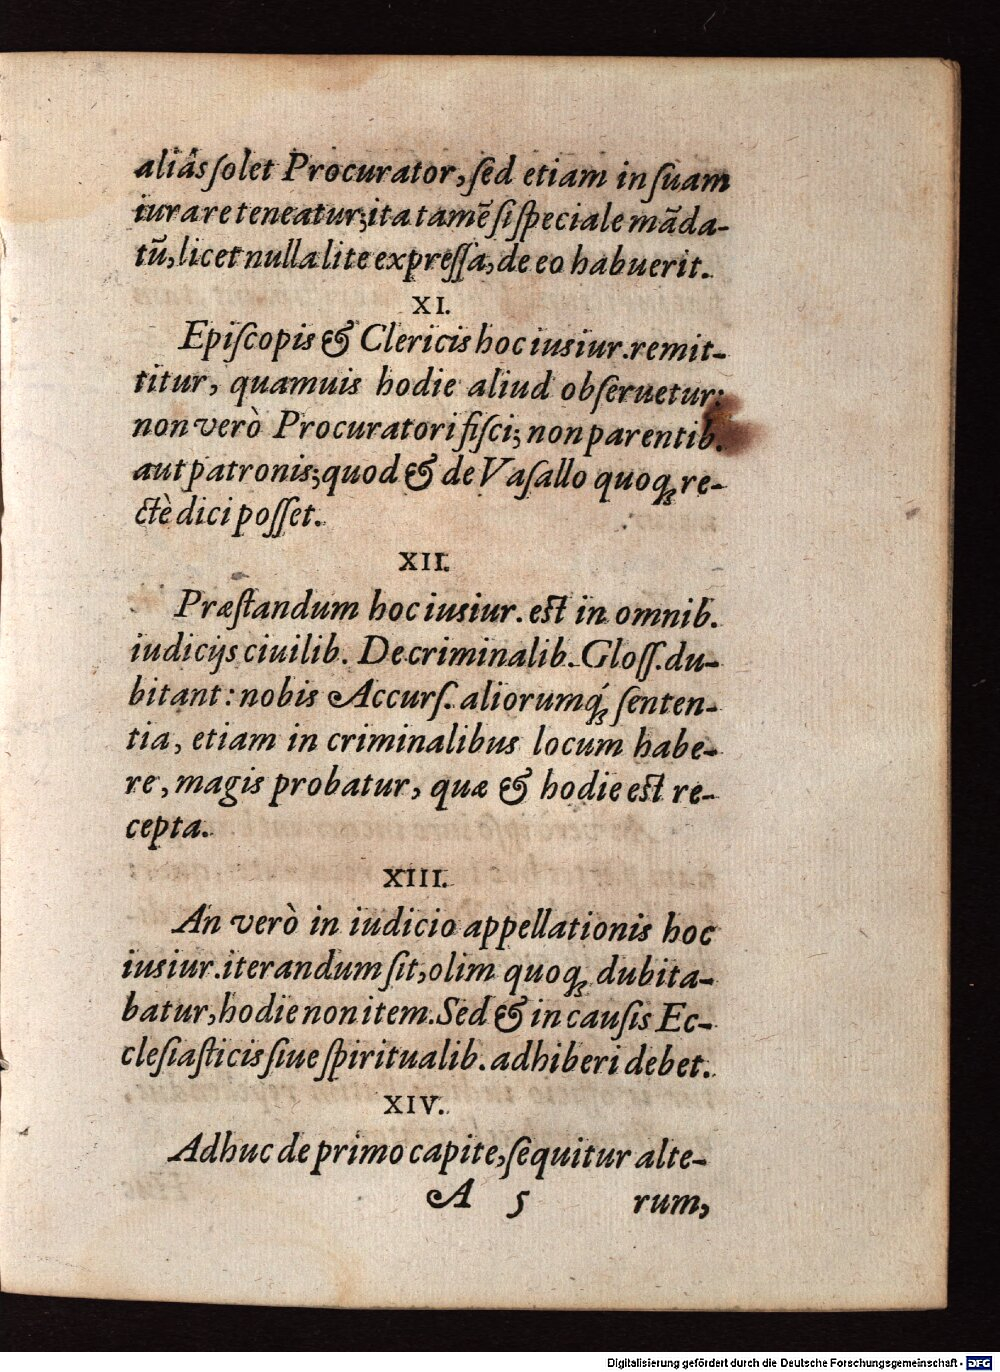 aliâs ſolet Procurator, ſed etiam in ſuam
iurare teneatur; ita tamẽ ſi ſpeciale mãda-
tũ, licet nulla lite expreſſa, de eo habuerit.
XI.
Epiſcopis & Clericis hoc iusiur. remit-
titur, quamuis hodie aliud obſeruetur:
non verò Procuratori fiſci; non parentib.
aut patronis; quod & de Vaſallo quoq; re-
ctè dici poſſet.
XII.
Præſtandum hoc iusiur. eſt in omnib.
iudicijs ciuilib. De criminalib. Gloſſ. du-
bitant: nobis Accurſ. aliorumq́; ſenten-
tia, etiam in criminalibus locum habe-
re, magis probatur, quæ & hodie eſt re-
cepta.
XIII.
An verò in iudicio appellationis hoc
iusiur. iterandum ſit, olim quoq; dubita-
batur, hodie non item. Sed & in cauſis Ec-
cleſiaſticis ſiue ſpiritualib. adhiberi debet.
XIV.
Adhuc de primo capite, ſequitur alte-
A 5 rum,
Digitalisierung gefördert durch die Deutsche Forschungsgemeinschaft - DFG